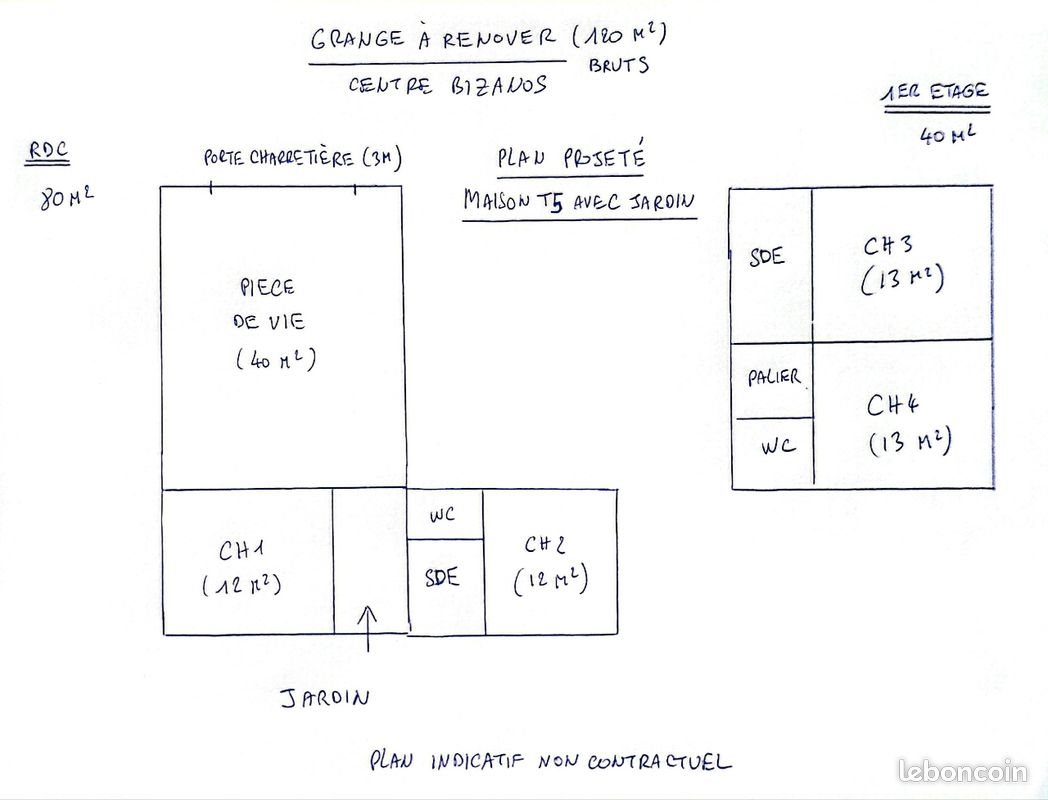 GRANGE À RENOVER (120 M²)
BRUTS
CENTRE BIZANOS
1ER ETAGE
40 M²
RDC
80 M²
PORTE CHARRETIÈRE (3M)
PLAN PROJETÉ
MAISON T5 AVEC JARDIN
PIECE
DE VIE
(40 M²)
CH1
(12 M²)
WC
SDE
CH2
(12 M²)
SDE
CH3
(13 M²)
PALIER
WC
CH4
(13 M²)
JARDIN
PLAN INDICATIF NON CONTRACTUEL
leboncoin